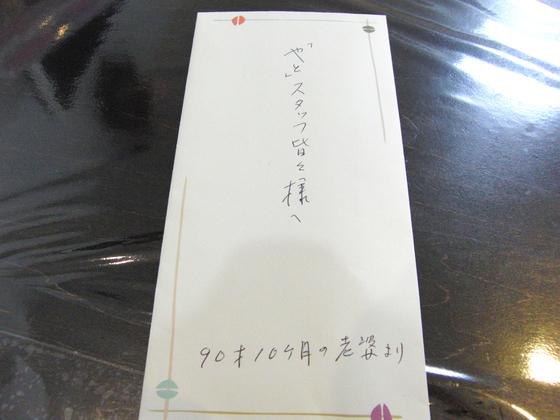 「やと」スタッフ皆々様へ
90才10ケ月の老婆より